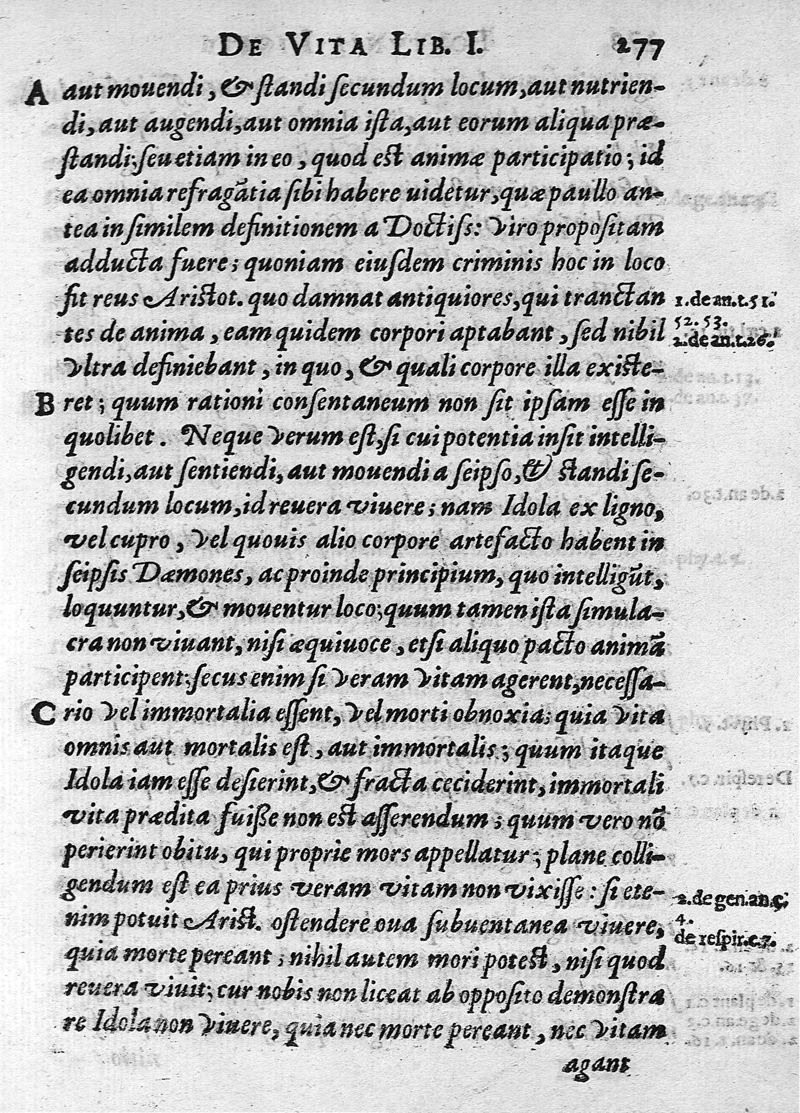 DE VITA LIB. I. 277
A aut mouendi, & ſtandi ſecundum locum, aut nutrien-
di, aut augendi, aut omnia iſta, aut eorum aliqua præ-
ſtandi; ſeu etiam in eo, quod eſt animæ participatio; id
ea omnia refragãtia ſibi habere uidetur, quæ paullo an-
tea in ſimilem definitionem a Doctiſs: Viro propoſitam
adducta fuere; quoniam eiuſdem criminis hoc in loco
fit reus Ariſtot. quo damnat antiquiores, qui tranctan
1. de an. t. 51.
tes de anima, eam quidem corpori aptabant, ſed nihil
52. 53.
2. de an. t. 26.
Vltra definiebant, in quo, & quali corpore illa exiſte-
B ret; quum rationi conſentaneum non ſit ipſam eſſe in
quolibet. Neque Verum eſt, ſi cui potentia inſit intelli-
gendi, aut ſentiendi, aut mouendi a ſeipſo, & ſtandi ſe-
cundum locum, id reuera viuere; nam Idola ex ligno,
vel cupro, Vel quouis alio corpore artefacto habent in
ſeipſis Dæmones, ac proinde principium, quo intelligũt,
loquuntur, & mouentur loco; quum tamen iſta ſimula-
cra non viuant, niſi æquiuoce, etſi aliquo pacto animã
participent: ſecus enim ſi Veram Vitam agerent, neceſſa-
C rio Vel immortalia eſſent, Vel morti obnoxia: quia Vita
omnis aut mortalis eſt, aut immortalis; quum itaque
Idola iam eſſe deſierint, & fracta ceciderint, immortali
vita prædita fuiſſe non eſt aſſerendum; quum vero nõ
perierint obitu, qui proprie mors appellatur; plane colli-
gendum eſt ea prius veram vitam non vixiſſe: ſi ete-
2. de gen. an. c.
nim potuit Ariſt. oſtendere oua ſubuentanea viuere,
4.
de reſpir. c. 7.
quia morte pereant; nihil autem mori poteſt, niſi quod
reuera viuit; cur nobis non liceat ab oppoſito demonſtra
re Idola non Viuere, quia nec morte pereant, nec Vitam
agant